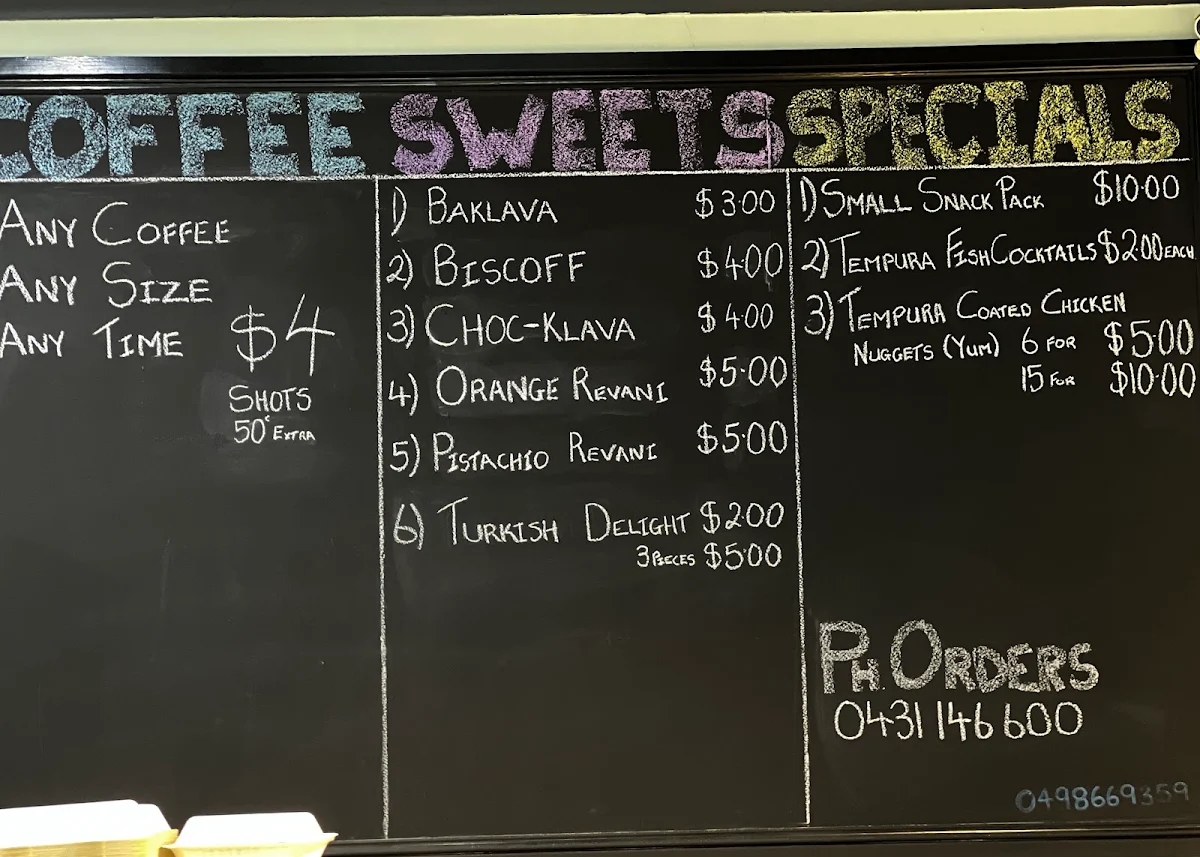 COFFEE
ANY COFFEE
ANY SIZE
ANY TIME $4
SHOTS
50¢ EXTRA
SWEETS
1) BAKLAVA $3.00
2) BISCOFF $4.00
3) CHOC-KLAVA $4.00
4) ORANGE REVANI $5.00
5) PISTACHIO REVANI $5.00
6) TURKISH DELIGHT $2.00
3 PIECES $5.00
SPECIALS
1) SMALL SNACK PACK $10.00
2) TEMPURA FISH COCKTAILS $2.00 EACH
3) TEMPURA COATED CHICKEN
NUGGETS (YUM) 6 FOR $5.00
15 FOR $10.00
PH. ORDERS
0431 146 600
0498669359